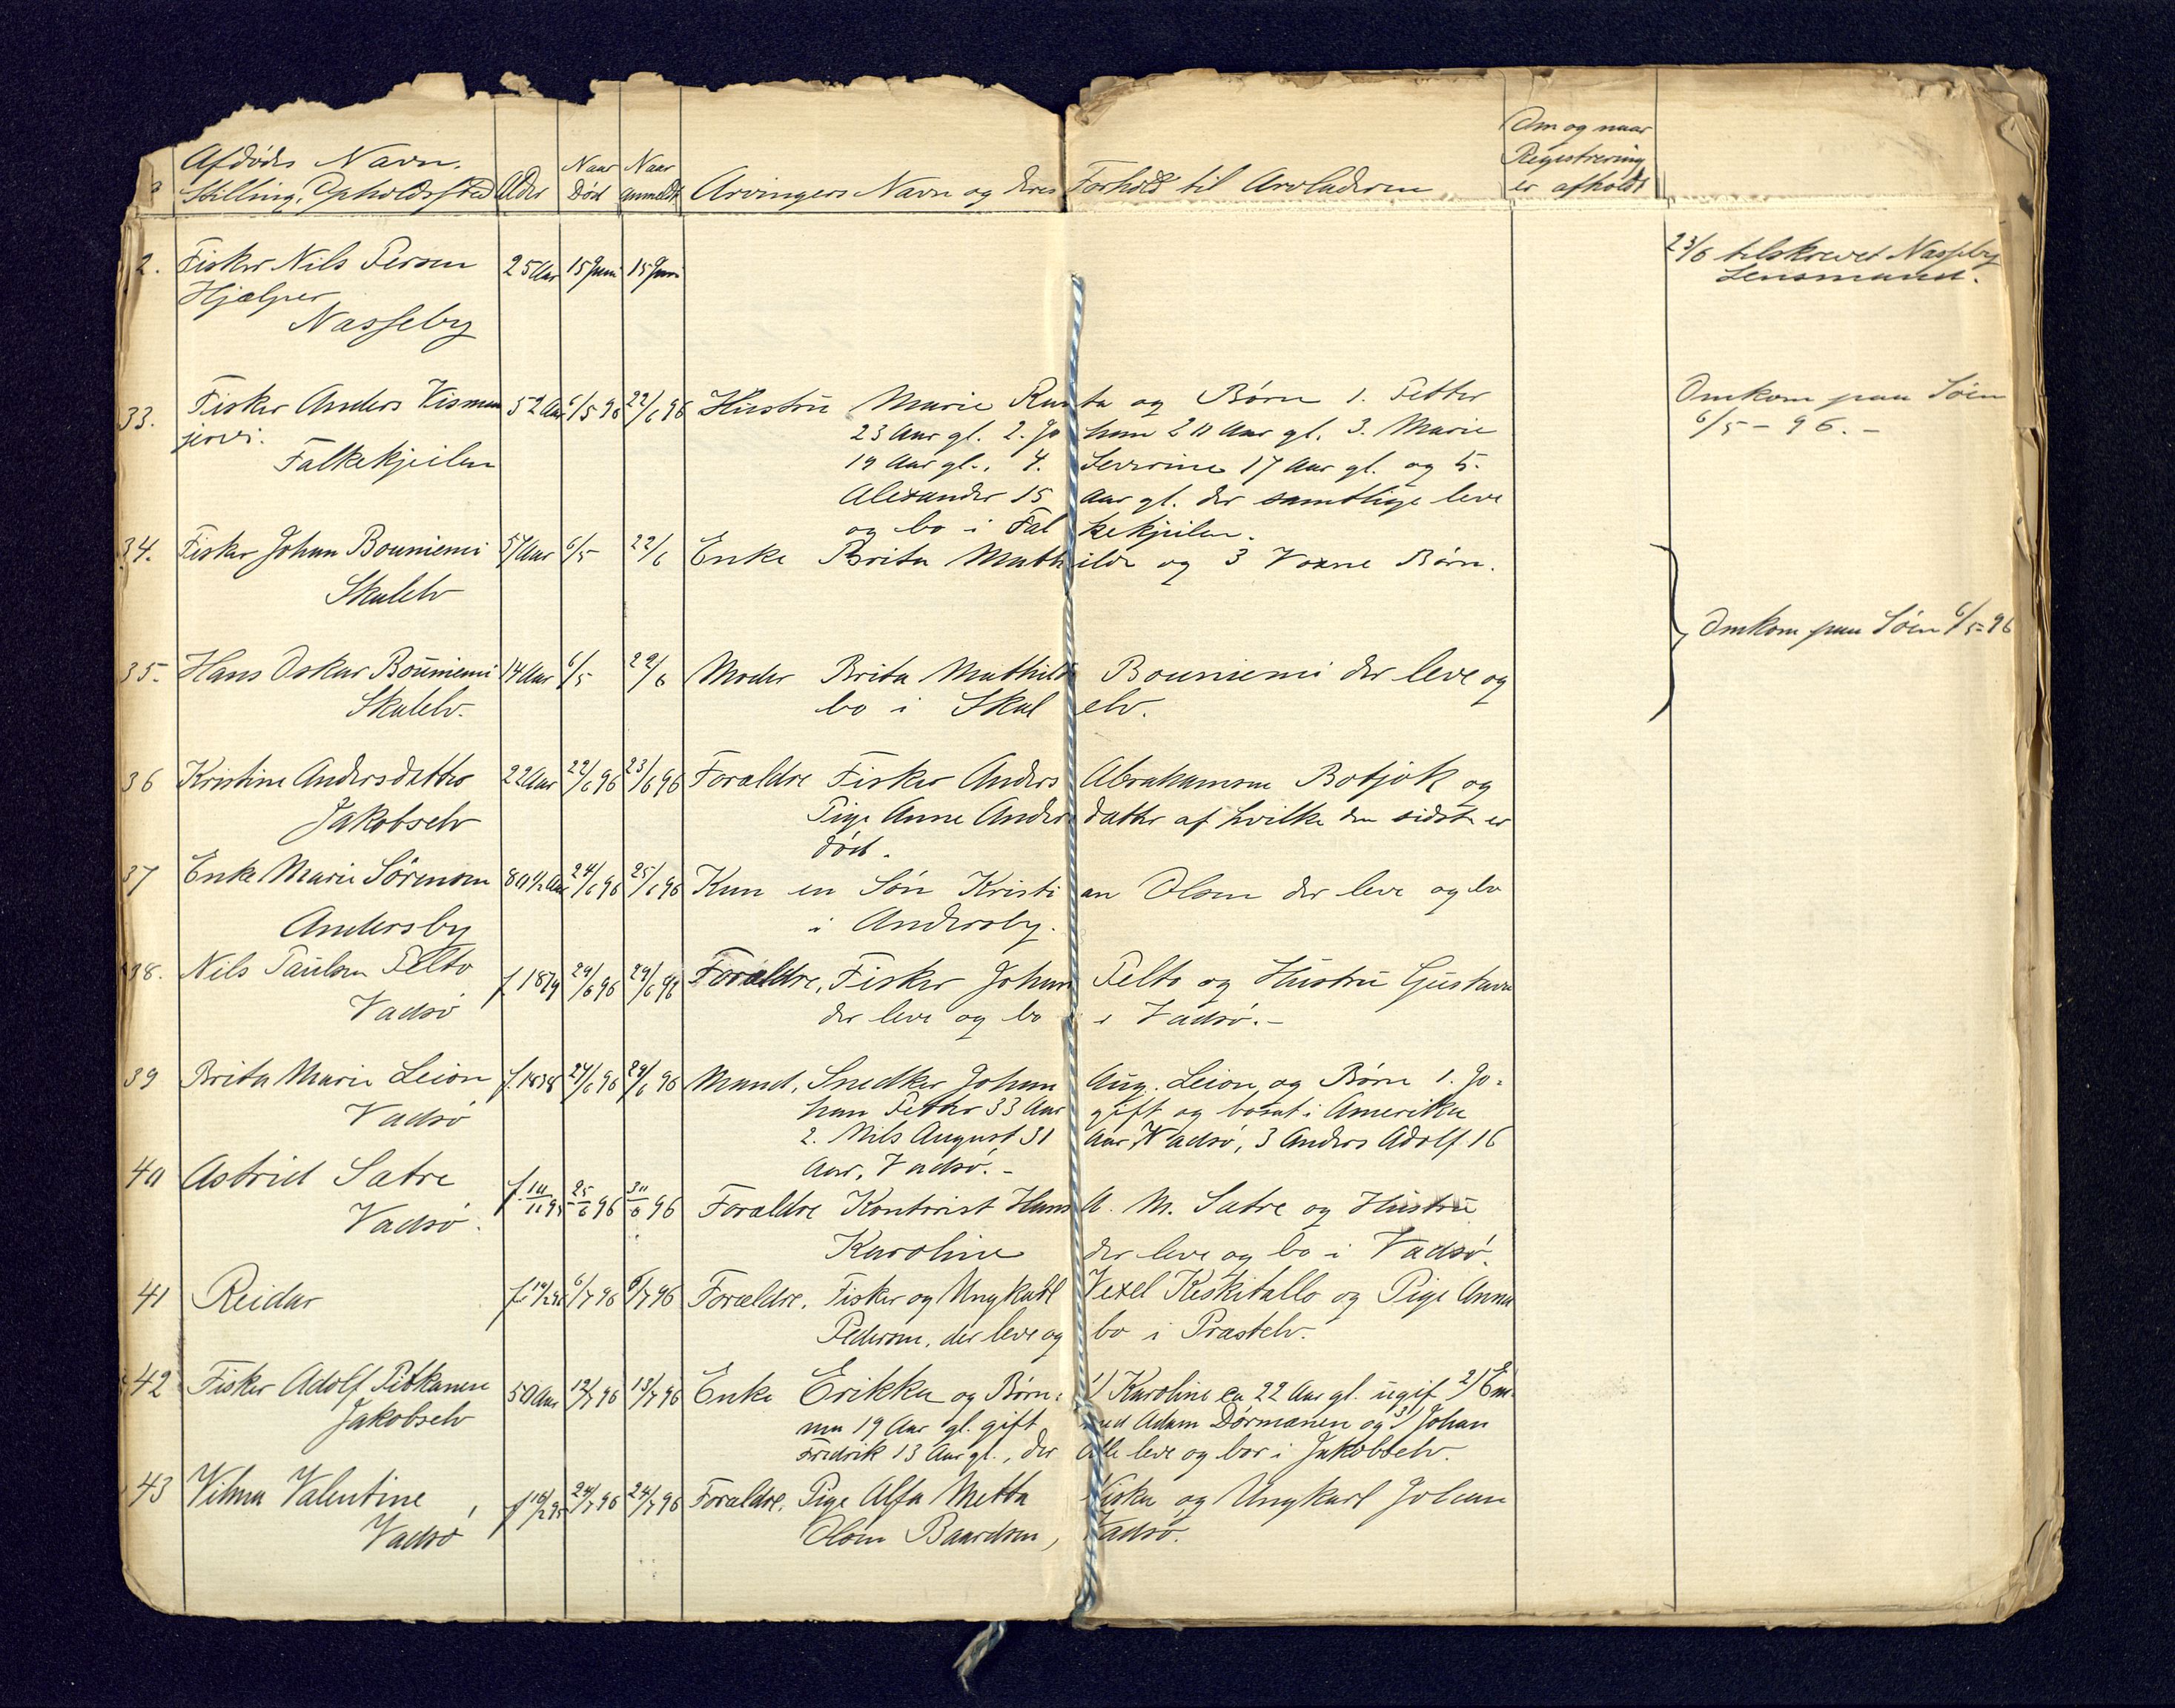 Afdødes Navn. Naar Naar Om og naar
Stilling, Opholdssted Alder Død anmeldt Arvingers Navn og deres Forhold til Arvladeren Registrering er afholdt
2. Fisker Nils Persen 25 Aar 15 Juni 15 Juni 23/6 tilskrevet Nasseby
Hjælper Lensmand.
Nasseby
33. Fisker Anders Vismen 52 Aar 6/5 96 22/6 96 Hustru Marie Ranta og Børn 1. Petter Omkom paa Søen
jervi. 23 Aar gl. 2. Johan 20 Aar gl. 3. Marie 6/5 - 96. -
Falkekjeilen 19 Aar gl., 4. Severine 17 Aar gl. og 5.
Alexander 15 Aar gl. der samtlige leve
og bo i Falkekjeilen.
34. Fisker Johan Bouniemi 57 Aar 6/5 22/6 Enke Brita Mathilde og 3 Voxne Børn.
Skalelv
Omkom paa Søen 6/5-96
35. Hans Oskar Bouniemi 14 Aar 6/5 22/6 Moder Brita Mathilde Bouniemi der leve og
Skalelv. bo i Skalelv.
36 Kristine Andersdatter 22 Aar 22/6 96 23/6 96 Forældre Fisker Anders Abrahamsen Botjok og
Jakobselv Pige Anne Andersdatter af hvilke den sidste er
død.
37 Enke Marie Sörensen 80 1/2 Aar 24/6 96 25/6 96 Kun en Søn Kristian Olsen der leve og bo
Andersby i Andersby.
38. Nils Paulsen Pelto f 1879 29/6 96 29/6 96 Forældre, Fisker Johan Pelto og Hustru Gustava
Vadsø der leve og bo i Vadsø. -
39 Brita Marie Leion f. 1838 24/6 96 29/6 96 Mand, Snedker Johan Aug. Leion og Børn 1. Jo-
Vadsø han Petter 33 Aar gift og bosat i Amerika
2. Nils August 31 Aar, Vadsø, 3 Anders Adolf 16
Aar, Vadsø. -
40 Astrid Satre f. 10/11 95 25/6 96 30/6 96 Forældre Kontorist Hans A. M. Satre og Hustru
Vadsø. Karoline der leve og bo i Vadsø.
41 Reidar 6/7 96 6/7 96 Forældre. Fisker og Ungkarl Vexel Keskitallo og Pige Anna
Pedersen, der leve og bo i Prastelv.
42 Fisker Adolf Pitkanen 50 Aar 12/7 96 13/7 96 Enke Erikka og Børn: 1) Karoline ca 22 Aar gl. ugif 2) Em-
Jakobselv ma 19 Aar gl. gift med Adam Dørmanen og 3) Johan
Fredrik 13 Aar gl., der Alle leve og bor i Jakobselv.
43 Vilma Valentine, 24/7 96 24/7 96 Forældre. Pige Alfa Metta Niska og Ungkarl Johan
Vadsø Olsen Baardsen, Vadsø.